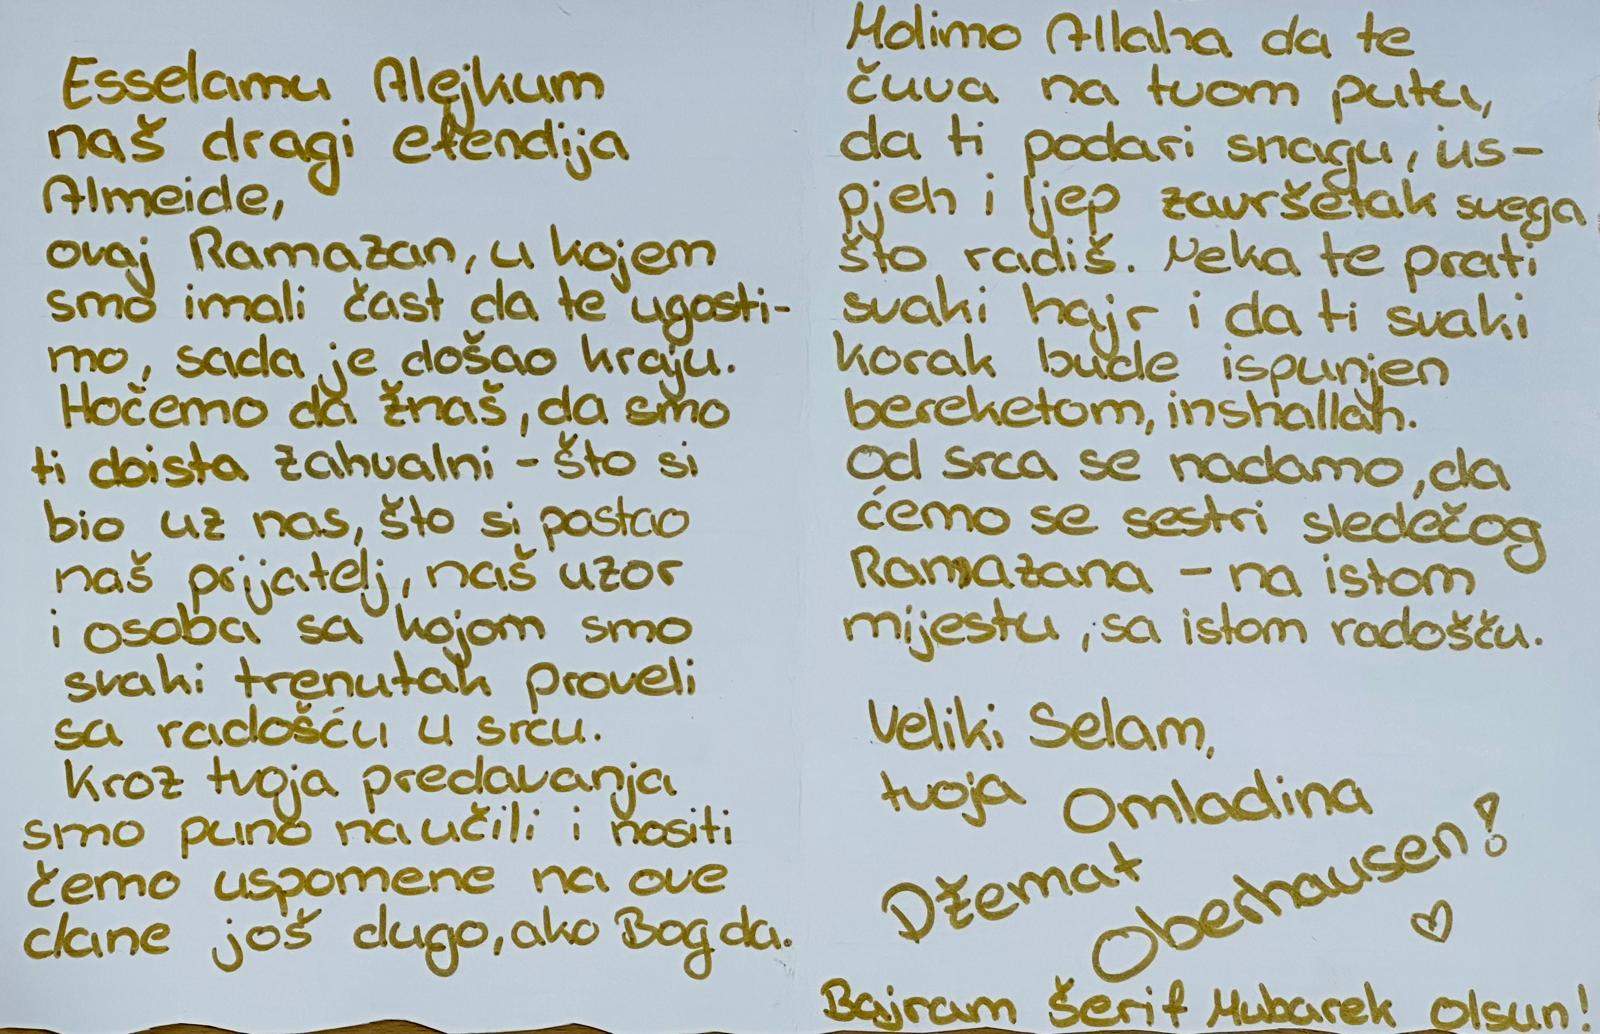 Esselamu Alejkum
naš dragi efendija
Almeide,
ovaj Ramazan, u kojem
smo imali čast da te ugosti-
mo, sada je došao kraju.
Hoćemo da žnaš, da smo
ti doista zahvalni - što si
bio uz nas, što si postao
naš prijatelj, naš uzor
i osoba sa kojom smo
svaki trenutak proveli
sa radošću u srcu.
Kroz tvoja predavanja
smo puno naučili i nositi
čemo uspomene na ove
dane još dugo, ako Bog da.
Molimo Allaha da te
čuva na tvom putu,
da ti podari snagu, us-
pjeh i ljep završetak svega
što radiš. Neka te prati
svaki hajr i da ti svaki
korak bude ispunjen
bereketom, inshallah.
Od srca se nadamo, da
ćemo se sestri sledečog
Ramazana - na istom
mijestu, sa istom radošču.
Veliki Selam,
tvoja Omladina
Džemat
Oberhausen!
Bajram Šerif Mubarek Olsun!